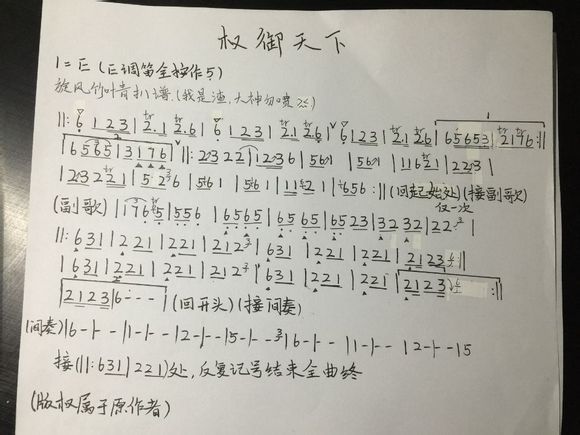 权御天下
1=E (E调笛全按作5)
旋风竹叶青扒谱.(我是渣,大神勿喷
||: 6 1 2 3 | 2.1 2.6 | 6 1 2 3 | 2.1 2.6 | 6 1 2 3 | 2.1 2.6 | 6 5 6 5 3 | 2 1 7 6 :||
6 5 6 5 | 3 1 7 6 ||: 2 3 2 2 | 1 2 3 6 | 5 6 1 | 5 6 1 | 1 1 6 2 1 | 2 2 3 |
| 2 3 2 2 1 | 5 2 3 6 | 5 6 1 | 5 6 1 | 1 1 2 1 | 6 5 6 :|| (回起始处) (接副歌)
仅一次
(副歌) | 1 7 6 5 | 5 5 6 | 6 5 6 5 | 6 5 6 5 | 6 5 2 3 | 3 2 3 2 | 2 2 |
||: 6 3 1 | 2 2 1 | 2 2 1 | 2 1 2 | 6 3 1 | 2 2 1 | 2 2 1 | 2 1 2 3 |
| 6 3 1 | 2 2 1 | 2 2 1 | 2 1 2 | 6 3 1 | 2 2 1 | 2 2 1 | 2 1 2 3 :||
| 2 1 2 3 | 6 - - - | (回开头) (接间奏)
(间奏) | 6 - | - - | 1 - | - - | 2 - | - - | 5 - | - - | 6 - | - - | 1 - | - - | 2 - | - | 5
接(||: 6 3 1 | 2 2 1)处,反复记号结束全曲终
(版权属于原作者)